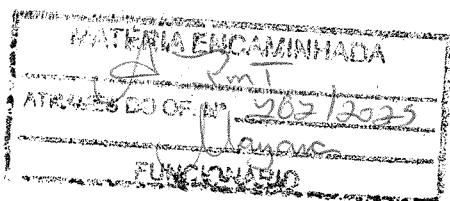 MATÉRIA ENCAMINHADA
ATRAVÉS DO OF. Nº 262/2023
Mayara
FUNCIONÁRIO